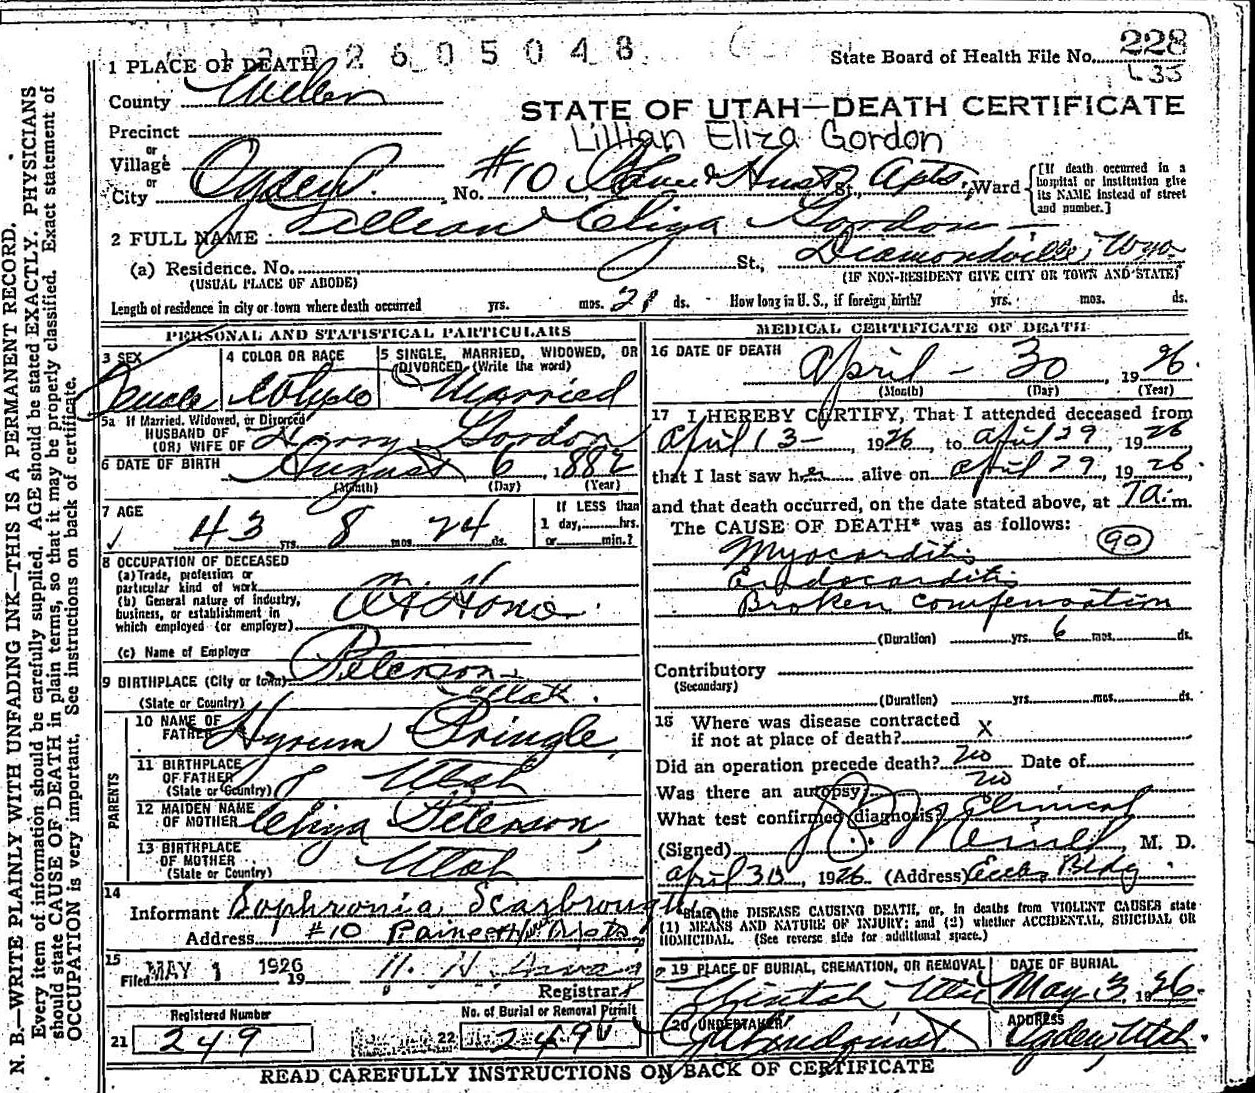 2605048
State Board of Health File No. 228
1 PLACE OF DEATH
County Weber
STATE OF UTAH—DEATH CERTIFICATE
Lillian Eliza Gordon
Precinct
or
Village
or
City Ogden. No. #10 Hurst St., Apts, Ward
[If death occurred in a hospital or institution give its NAME instead of street and number.]
2 FULL NAME Lillian Eliza Gordon
(a) Residence. No. St., Diamondville, Wyo.
(USUAL PLACE OF ABODE) (IF NON-RESIDENT GIVE CITY OR TOWN AND STATE)
Length of residence in city or town where death occurred yrs. mos. 21 ds. How long in U. S., if foreign birth? yrs. mos. ds.
PERSONAL AND STATISTICAL PARTICULARS
3 SEX
Female
4 COLOR OR RACE
5 SINGLE, MARRIED, WIDOWED, OR
DIVORCED (Write the word)
Married
5a If Married, Widowed, or Divorced
HUSBAND OF
(OR) WIFE OF Harry Gordon
6 DATE OF BIRTH August 6 1882
(Month) (Day) (Year)
7 AGE
43 yrs. 8 mos. 24 ds.
If LESS than
1 day, hrs.
or min.?
8 OCCUPATION OF DECEASED
(a) Trade, profession or
particular kind of work
(b) General nature of industry,
business, or establishment in
which employed (or employer)
At Home
(c) Name of Employer
9 BIRTHPLACE (City or town) Peterson
(State or Country) Utah.
PARENTS
10 NAME OF
FATHER Hyrum Pringle
11 BIRTHPLACE
OF FATHER
(State or Country) Utah
12 MAIDEN NAME
OF MOTHER Eliza Peterson
13 BIRTHPLACE
OF MOTHER
(State or Country) Utah
14
Informant Sophronia Scarbrough
Address #10 Apts
15
Filed MAY 1 1926 19
Registrar
Registered Number
21 249
No. of Burial or Removal Permit
22 249
MEDICAL CERTIFICATE OF DEATH
16 DATE OF DEATH
April - 30, 1926
(Month) (Day) (Year)
17 I HEREBY CERTIFY, That I attended deceased from
April 13 - 1926, to April 29, 1926
that I last saw her alive on April 29, 1926,
and that death occurred, on the date stated above, at 7 a. m.
The CAUSE OF DEATH* was as follows:
90
Myocarditis
Endocarditis
Broken compensation
(Duration) yrs. 6 mos. ds.
Contributory
(Secondary)
(Duration) yrs. mos. ds.
18 Where was disease contracted
if not at place of death? X
Did an operation precede death? no Date of
Was there an autopsy? no
What test confirmed diagnosis? Clinical
(Signed) Merrill, M. D.
April 30, 1926 (Address) Eccles Bldg
*State the DISEASE CAUSING DEATH, or, in deaths from VIOLENT CAUSES state
(1) MEANS AND NATURE OF INJURY; and (2) whether ACCIDENTAL, SUICIDAL OR
HOMICIDAL. (See reverse side for additional space.)
19 PLACE OF BURIAL, CREMATION, OR REMOVAL
Uintah Utah
DATE OF BURIAL
May 3 1926.
20 UNDERTAKER
Lindquist
ADDRESS
Ogden, Utah
READ CAREFULLY INSTRUCTIONS ON BACK OF CERTIFICATE
N. B.—WRITE PLAINLY WITH UNFADING INK—THIS IS A PERMANENT RECORD.
Every item of information should be carefully supplied. AGE should be stated EXACTLY. PHYSICIANS
should state CAUSE OF DEATH in plain terms, so that it may be properly classified. Exact statement of
OCCUPATION is very important. See instructions on back of certificate.